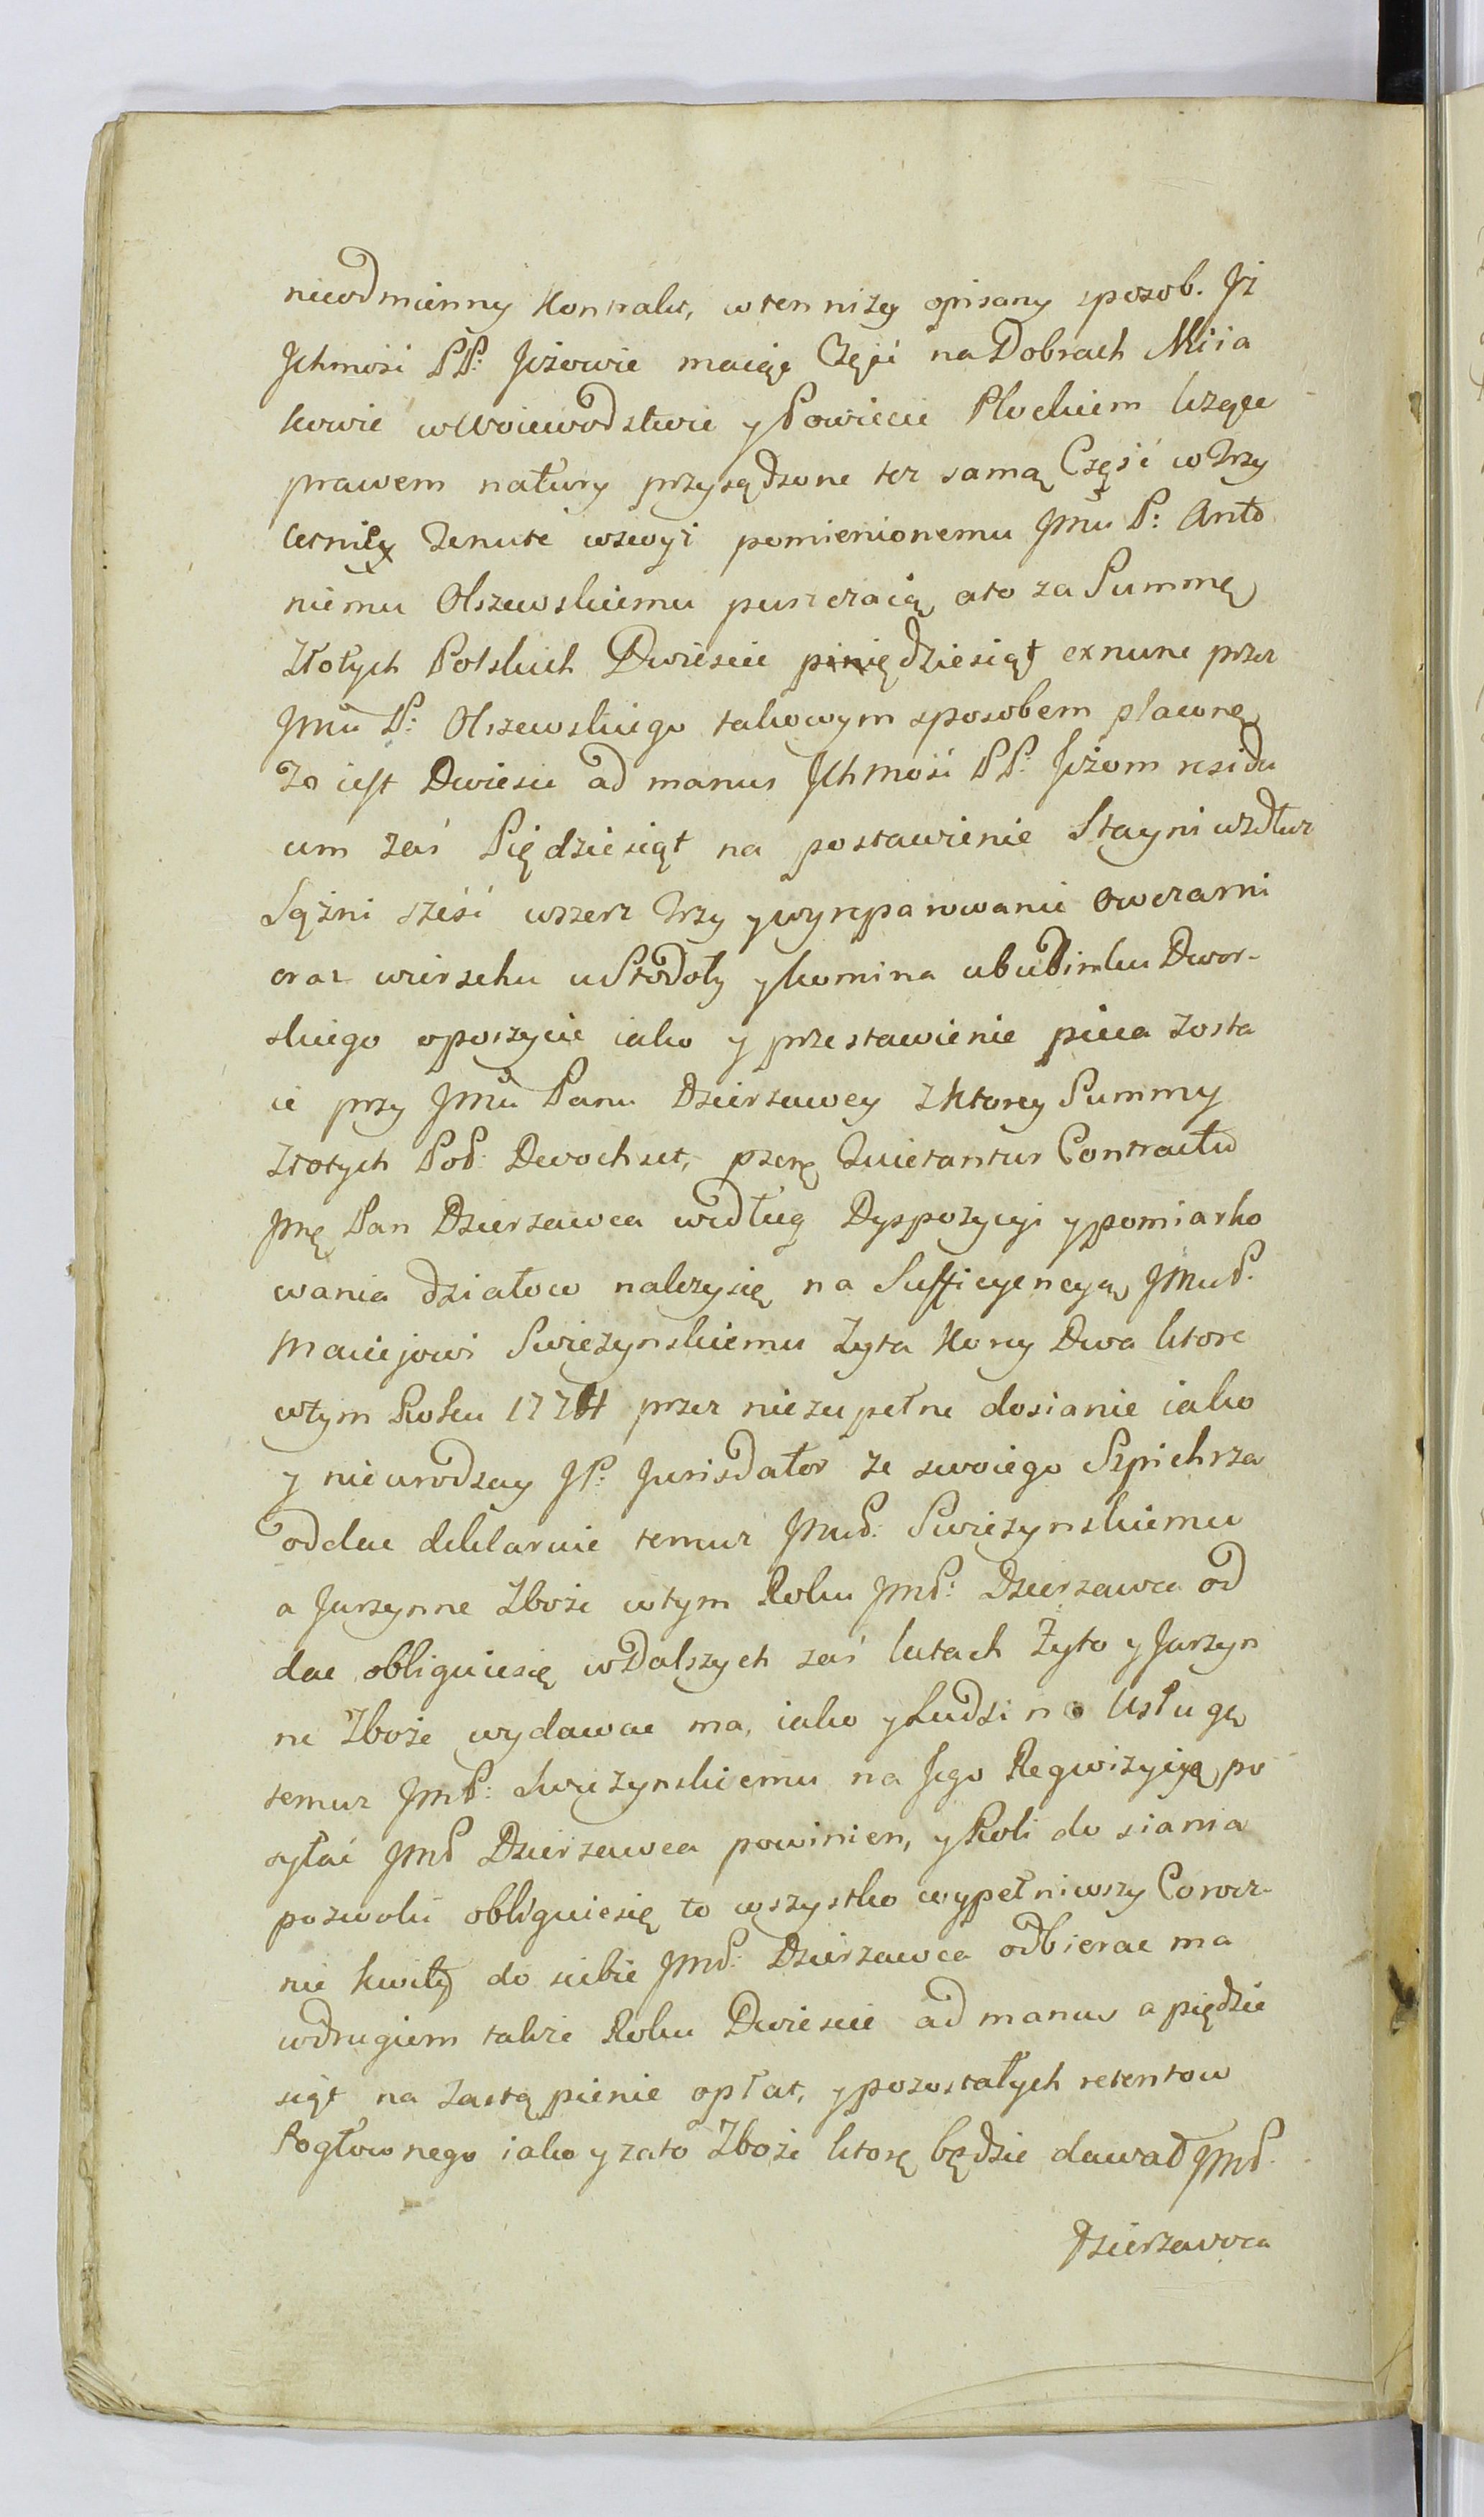 nieodmienny Kontrakt, wten nizey opisany sposob. Jż
Jchmosci PP: Jżowie maiąc Część na Dobrach Miia
kowie wWoiewodstwie y Powiecie Plockiem leżące
prawem natury przysądzone też samą Część w Trzy
letnią Tenute wzwyż pomienionemu Jmu P: Anto
niemu Olszewskiemu puszczaią, ato za Summę
Złotych Polskich Dwiescie pięędziesiąt exnunc przez
Jmu P: Olszewskiego takowym sposobem płacone
To iest Dwiescie ad manus Jchmość PP: Jżom residu
um zaś Piędziesiąt na postawienie Stayni wzdłuz
Sążni sześć wszerz Trzy y wyreparowanie Owczarni
oraz wierzchu u Stodoły y komina ubudinku Dwor-
skiego oposzycie iako y przestawienie pieca zosta
ie przy Jmu Panu Dzierzawcy Zktorey Summy
Złotych Pol: Dwochset, Quietantur Contractu
Jmę Pan Dzierzawca według Dyspozycyi y pomiarko
wania działow nalezysię na Sufficyencyą JMuP.
Maciejowi Swięzynskiemu Zyta Korcy Dwa ktore
wtym Roku 1774 przez niezupełne dosianie iako
y nieurodzay JP: Jurisdator ze swoiego Szpichrza
oddac deklaruie temuz JmuP: Swięzynskiemu
a Jarzynne Zboże wtym Roku JmP: Dzierzawca od
dac obliguiesię wDalszych zaś latach Żyto y Jarzyn
ne Zboże wydawac ma, iako y Ludzi na Usługę
temuz JmP: Swięzynskiemu na Jego Regwizycyią po
syłać JmP Dzierzawca powinien, y Roli do siania
pozwolić obliguiesię to wszystko wypełniwszy Corocz-
nie kwity do siebie JmP: Dzierzawca odbierac ma
wdrugiem takze Roku Dwiescie ad manus a piędzie
siąt na zastąpienie opłat, y pozostałych retentow
Pogłownego iako y zato Zboże ktore będzie dawał JmP.
Dzierzawca